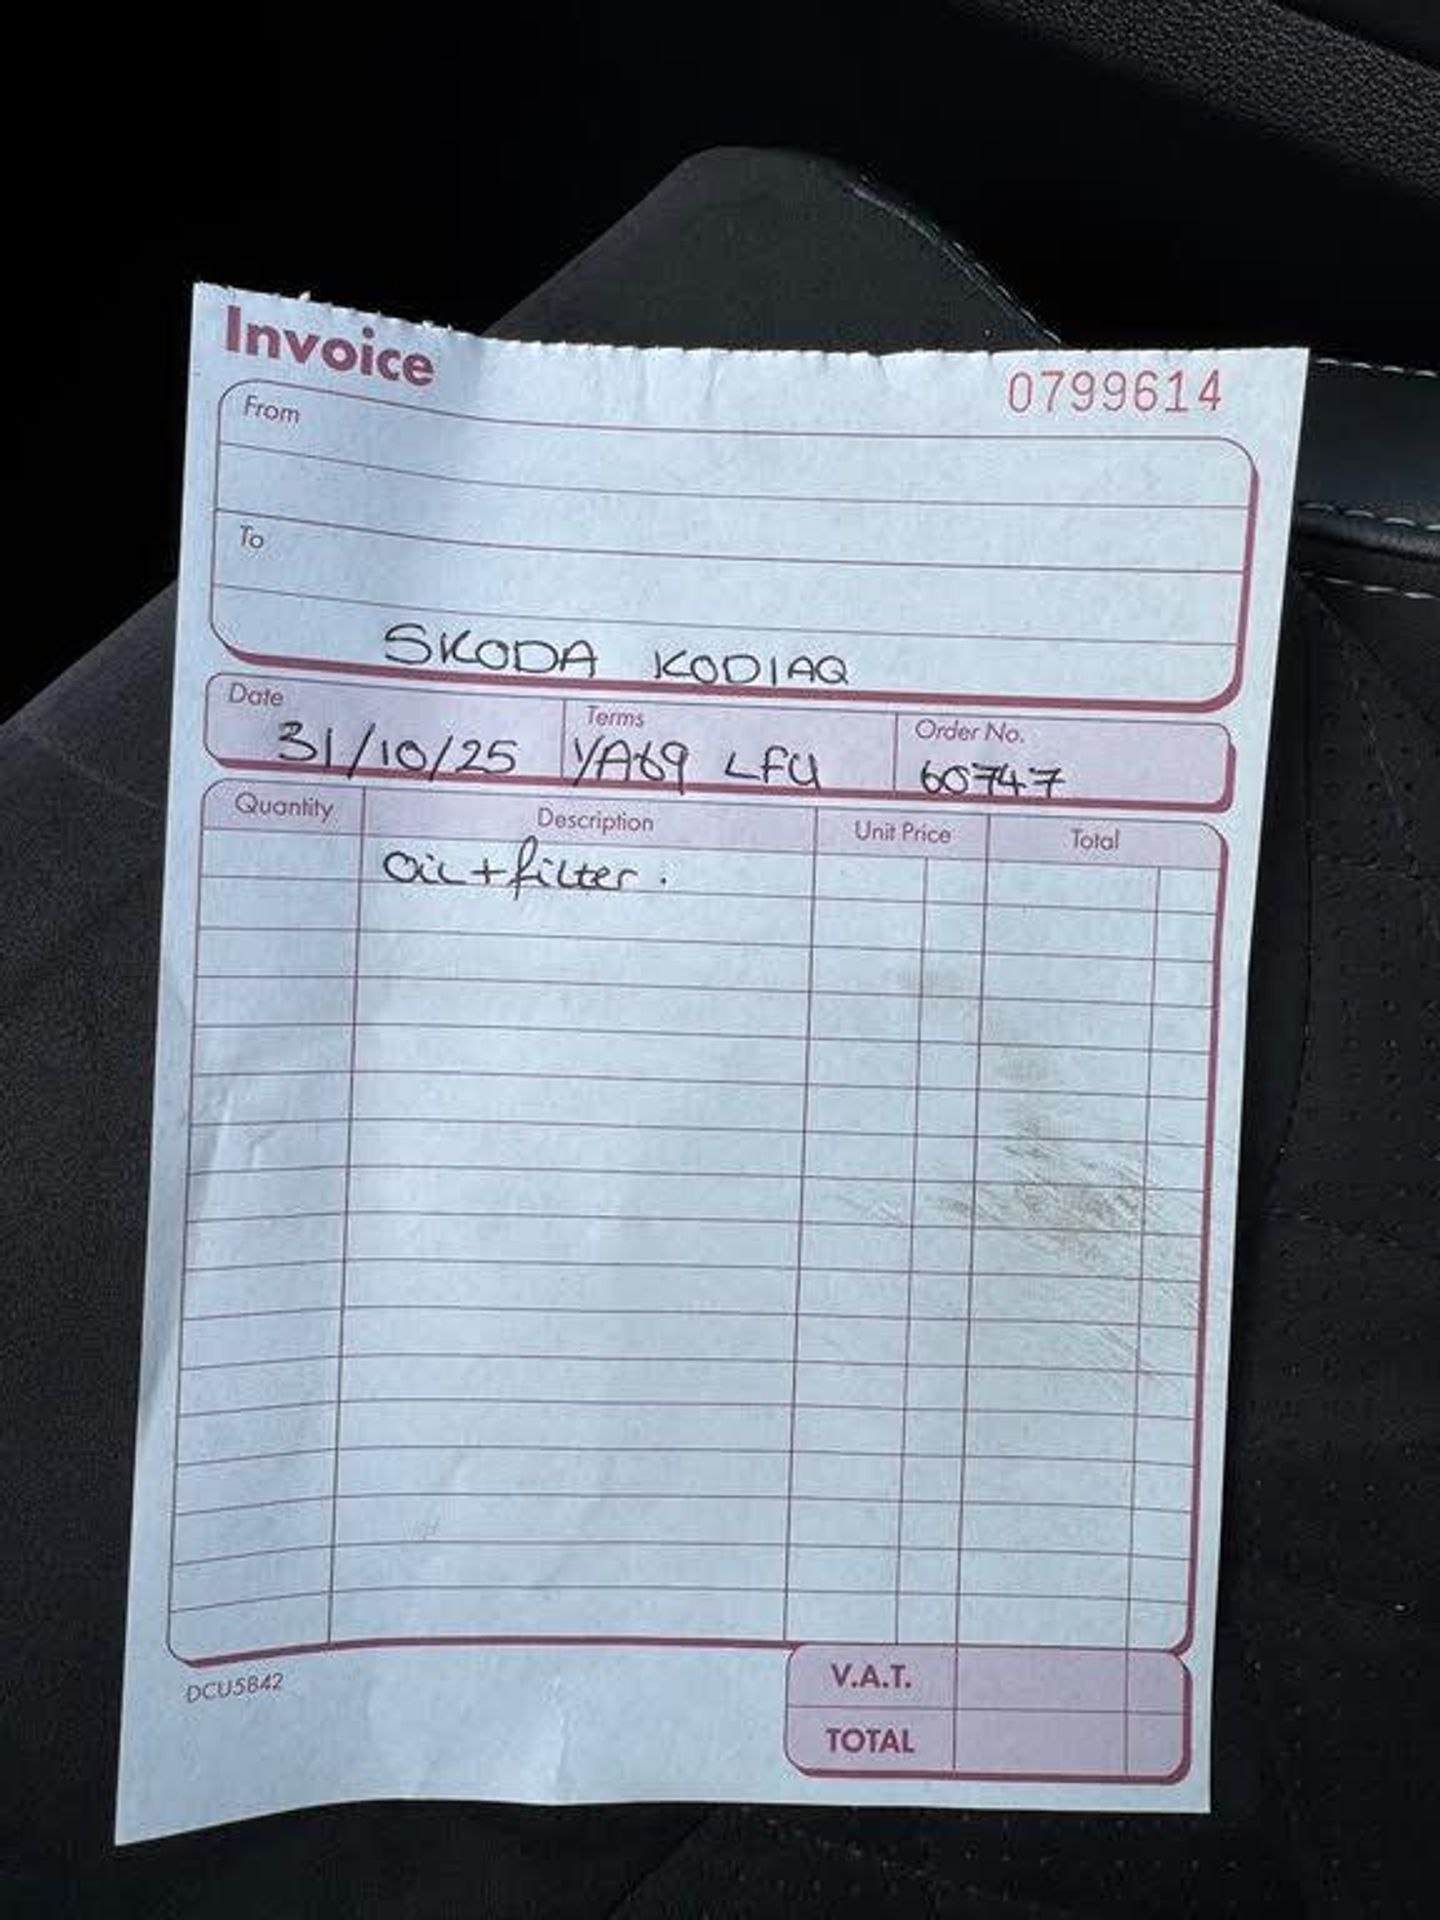 Invoice
0799614
From
To
SKODA KODIAQ
Date Terms Order No.
31/10/25 YA69 LFU 60747
Quantity Description Unit Price Total
Oil + filter.
DCU5842
V.A.T.
TOTAL